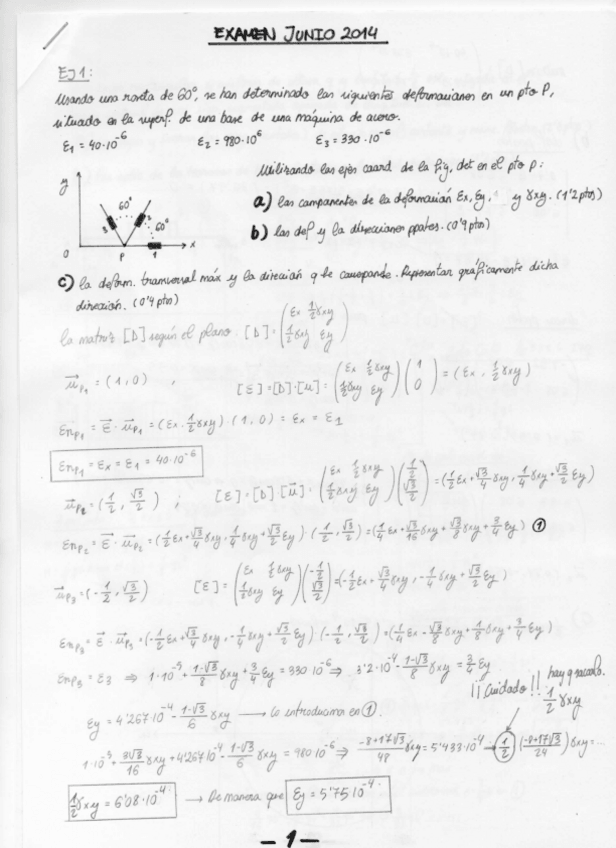 EXAMEN JUNIO 2014
EJ1:
Usando una roseta de 60°, se han determinado las siguientes deformaciones en un pto P,
situado en la superf. de una base de una máquina de acero.
ε₁ = 40·10⁻⁶ ε₂ = 980·10⁶ ε₃ = 330·10⁻⁶
Utilizando los ejes coord de la fig, det en el pto p:
a) las componentes de la deformación εx, εy, y γxy. (1'2 ptos)
b) las def y la direcciones ppales. (0'9 ptos)
y
60°
60°
3
2
1
0
P
x
c) la deform. transversal máx y la dirección q le corresponde. Representar gráficamente dicha
dirección. (0'4 ptos)
la matriz [D] según el plano: [D] = (εx ½γxy ; ½γxy εy)
u⃗p₁ = (1,0) , [ε] = [D]·[u] = (εx ½γxy ; ½γxy εy) (1 ; 0) = (εx , ½γxy)
εnp₁ = ε⃗ · u⃗p₁ = (εx · ½γxy) · (1,0) = εx = ε₁
εnp₁ = εx = ε₁ = 40·10⁻⁶
u⃗p₂ = (½, √3/2) ; [ε] = [D] [u⃗] = (εx ½γxy ; ½γxy εy) (½ ; √3/2) = (½εx + √3/4 γxy, ¼γxy + √3/2 εy)
εnp₂ = ε⃗ · u⃗p₂ = (½εx + √3/4 γxy, ¼γxy + √3/2 εy) · (½, √3/2) = (¼εx + √3/16 γxy + √3/8 γxy + ¾εy) ①
u⃗p₃ = (-½, √3/2) [ε] = (εx ½γxy ; ½γxy εy) (-½ ; √3/2) = (-½εx + √3/4 γxy, -¼γxy + √3/2 εy)
εnp₃ = ε⃗ · u⃗p₃ = (-½εx + √3/4 γxy, -¼γxy + √3/2 εy) · (-½, √3/2) = (¼εx - √3/8 γxy + 1/8 γxy + ¾εy)
εnp₃ = ε₃ ⇒ 1·10⁻⁵ + (1-√3)/8 γxy + ¾εy = 330·10⁻⁶ ⇒ 3'2·10⁻⁴ - (1-√3)/8 γxy = ¾εy
¡¡Cuidado!! hay q sacarlo.
½γxy
εy = 4'267·10⁻⁴ - (1-√3)/6 γxy → Lo introducimos en ①.
1·10⁻⁵ + 3√3/16 γxy + 4'267·10⁻⁴ - (1-√3)/6 γxy = 980·10⁻⁶ ⇒ (-8+17√3)/48 γxy = 5'433·10⁻⁴ → ½ ((-8+17√3)/24) γxy = ...
½γxy = 6'08·10⁻⁴ → De manera que εy = 5'75·10⁻⁴
- 1 -